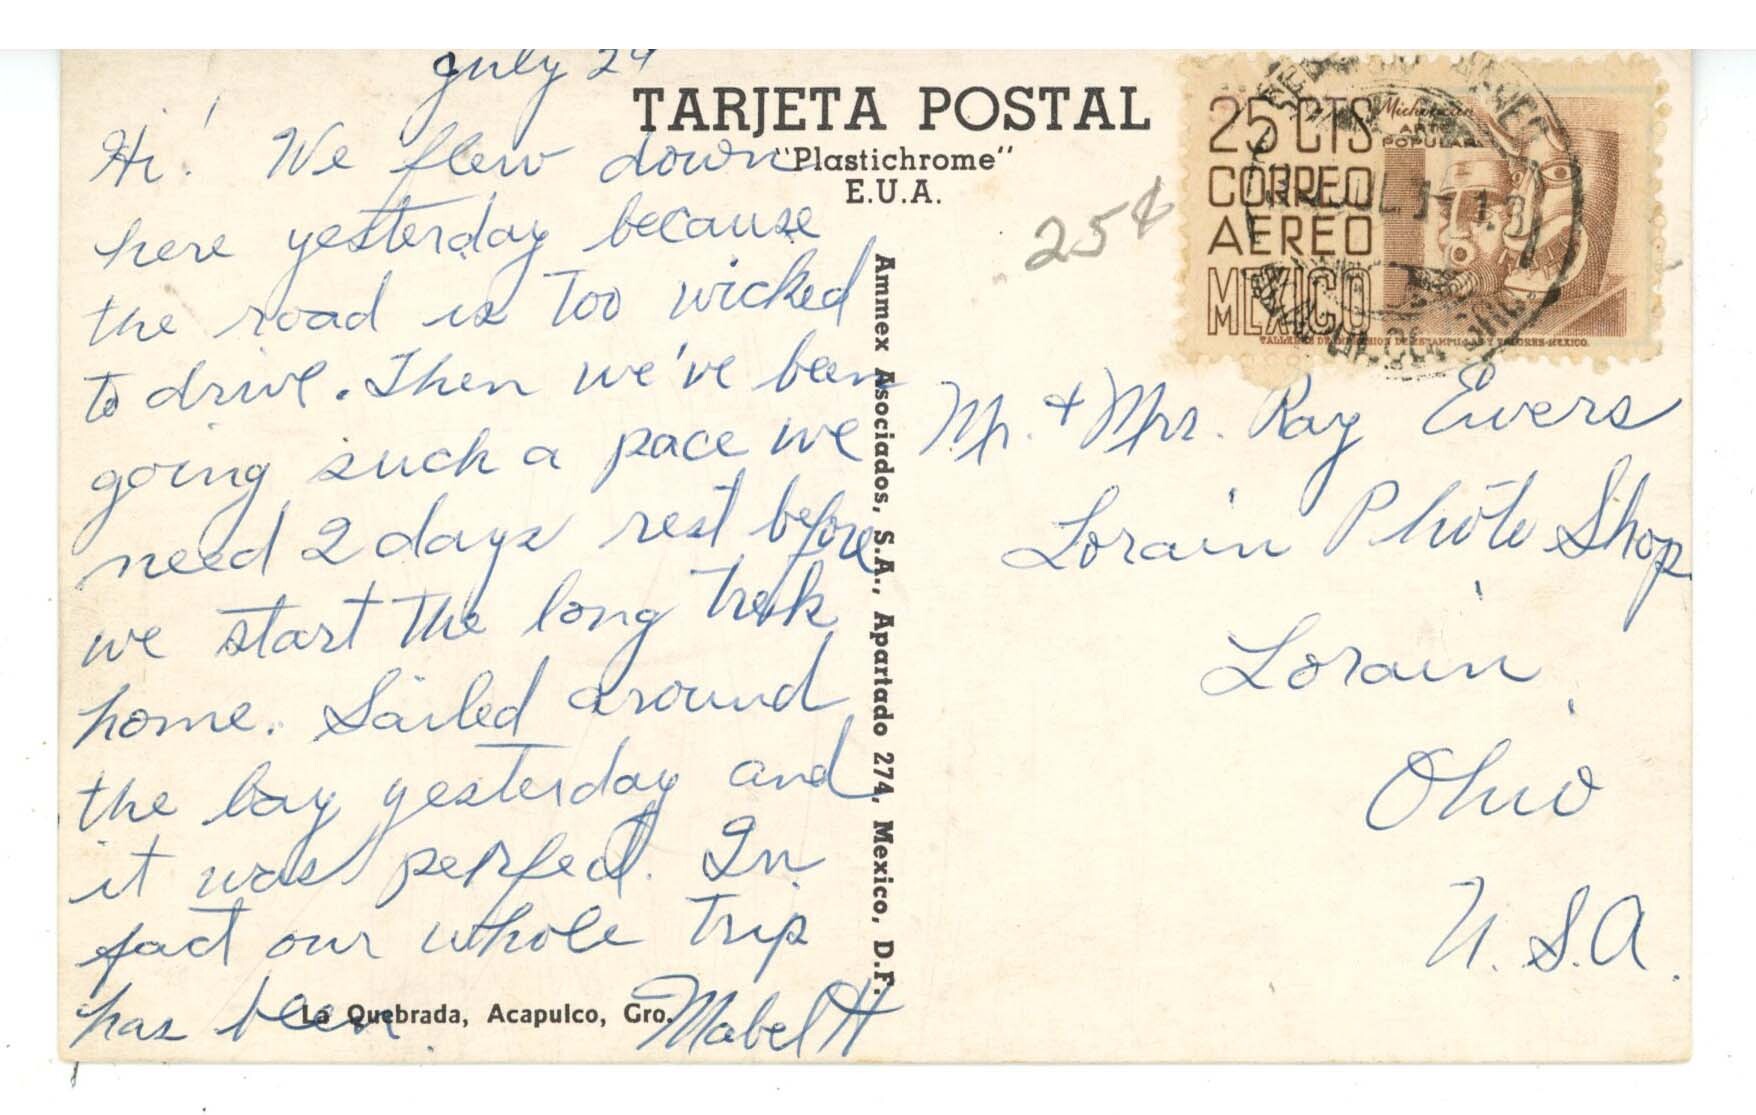 July 24
Hi! We flew down
here yesterday because
the road is too wicked
to drive. Then we've been
going such a pace we
need 2 days rest before
we start the long trek
home. Sailed around
the bay yesterday and
it was perfect. In
fact our whole trip
has been.
Mabel H
La Quebrada, Acapulco, Gro.
TARJETA POSTAL
"Plastichrome"
E.U.A.
Ammex Asociados, S.A., Apartado 274, Mexico, D.F.
25¢
25 CTS
CORREO
AEREO
MEXICO
Michoacán
ARTE
POPULAR
TALLERES DE IMPRESION DE ESTAMPILLAS Y VALORES-MEXICO.
JUL
Mr. + Mrs. Ray Ewers
Lorain Photo Shop
Lorain,
Ohio
U.S.A.